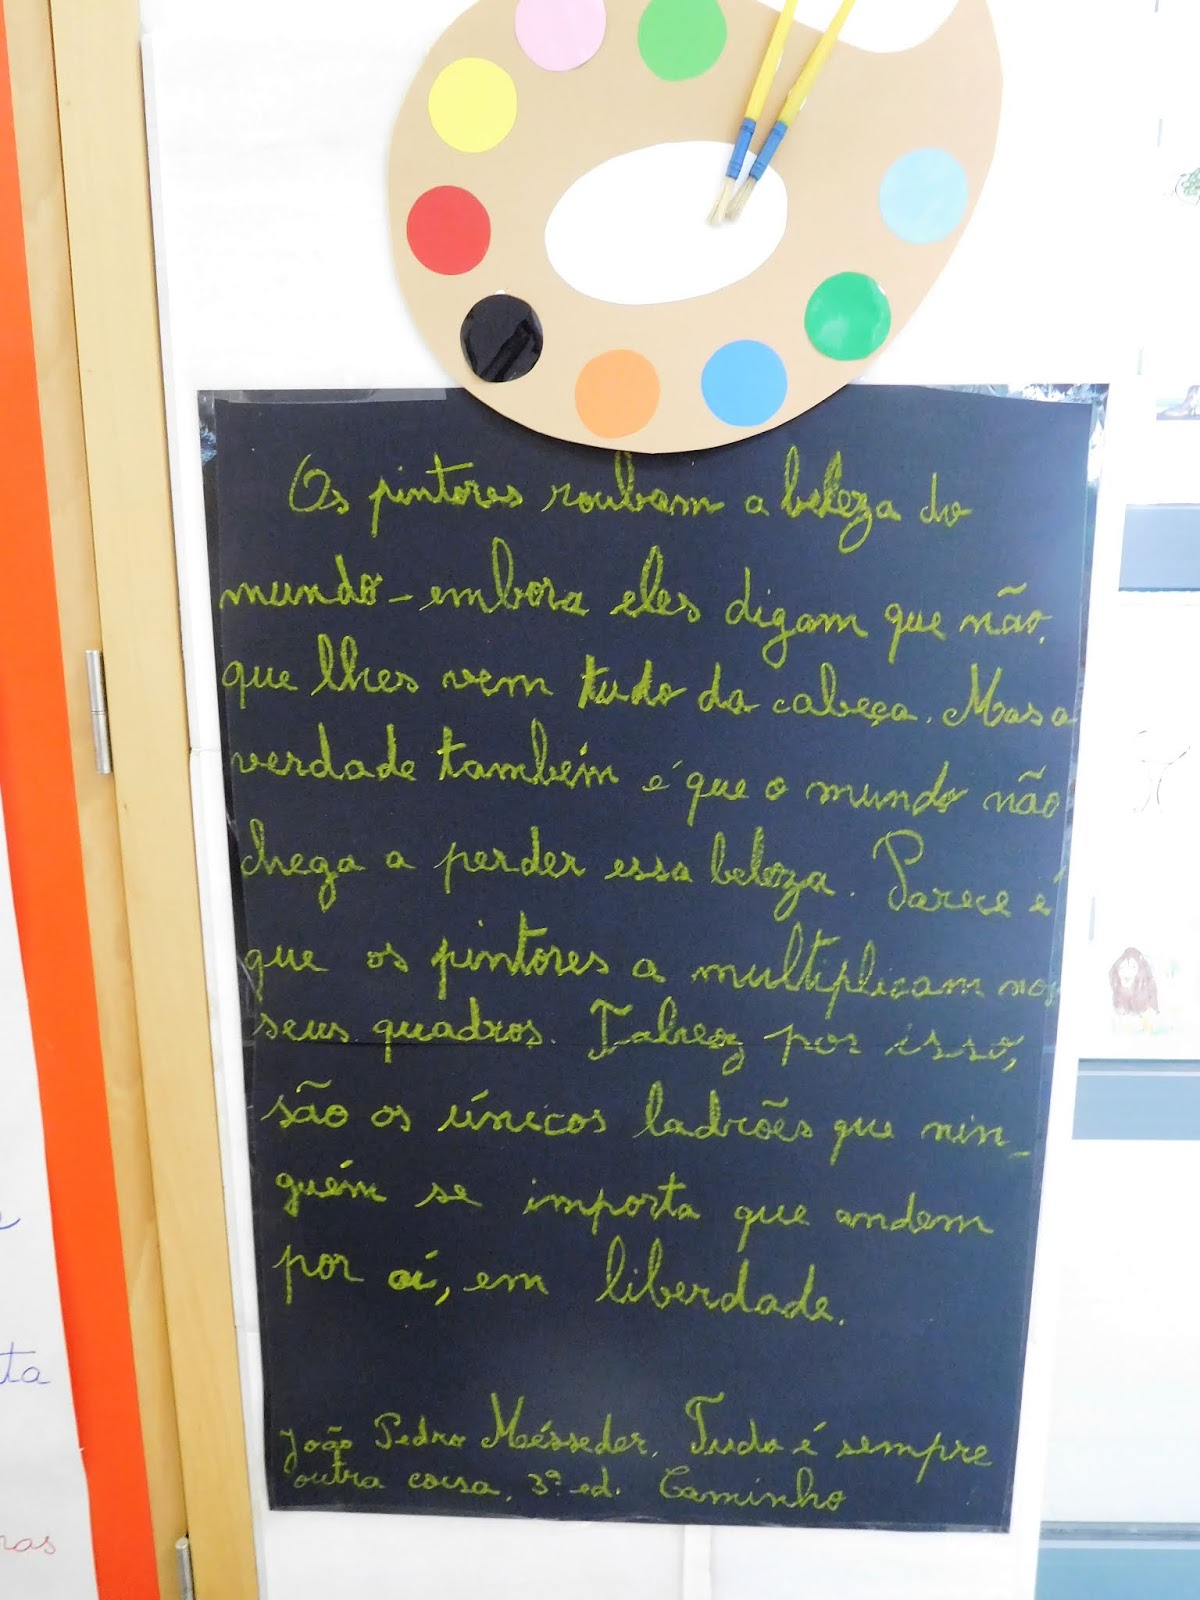 Os pintores roubam a beleza do
mundo - embora eles digam que não,
que lhes vem tudo da cabeça. Mas a
verdade também é que o mundo não
chega a perder essa beleza. Parece é
que os pintores a multiplicam nos
seus quadros. Talvez por isso,
são os únicos ladrões que nin-
guém se importa que andem
por aí, em liberdade.
João Pedro Mésseder, Tudo é sempre
outra coisa, 3ª ed. Caminho